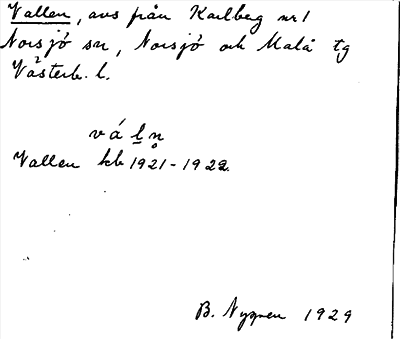 Vallen, avs från Karlberg nr 1
Norsjö sn, Norsjö och Malå tg
Västerb. l.
vá l̲ n̥
Vallen kb 1921-1922
B. Nygren 1929